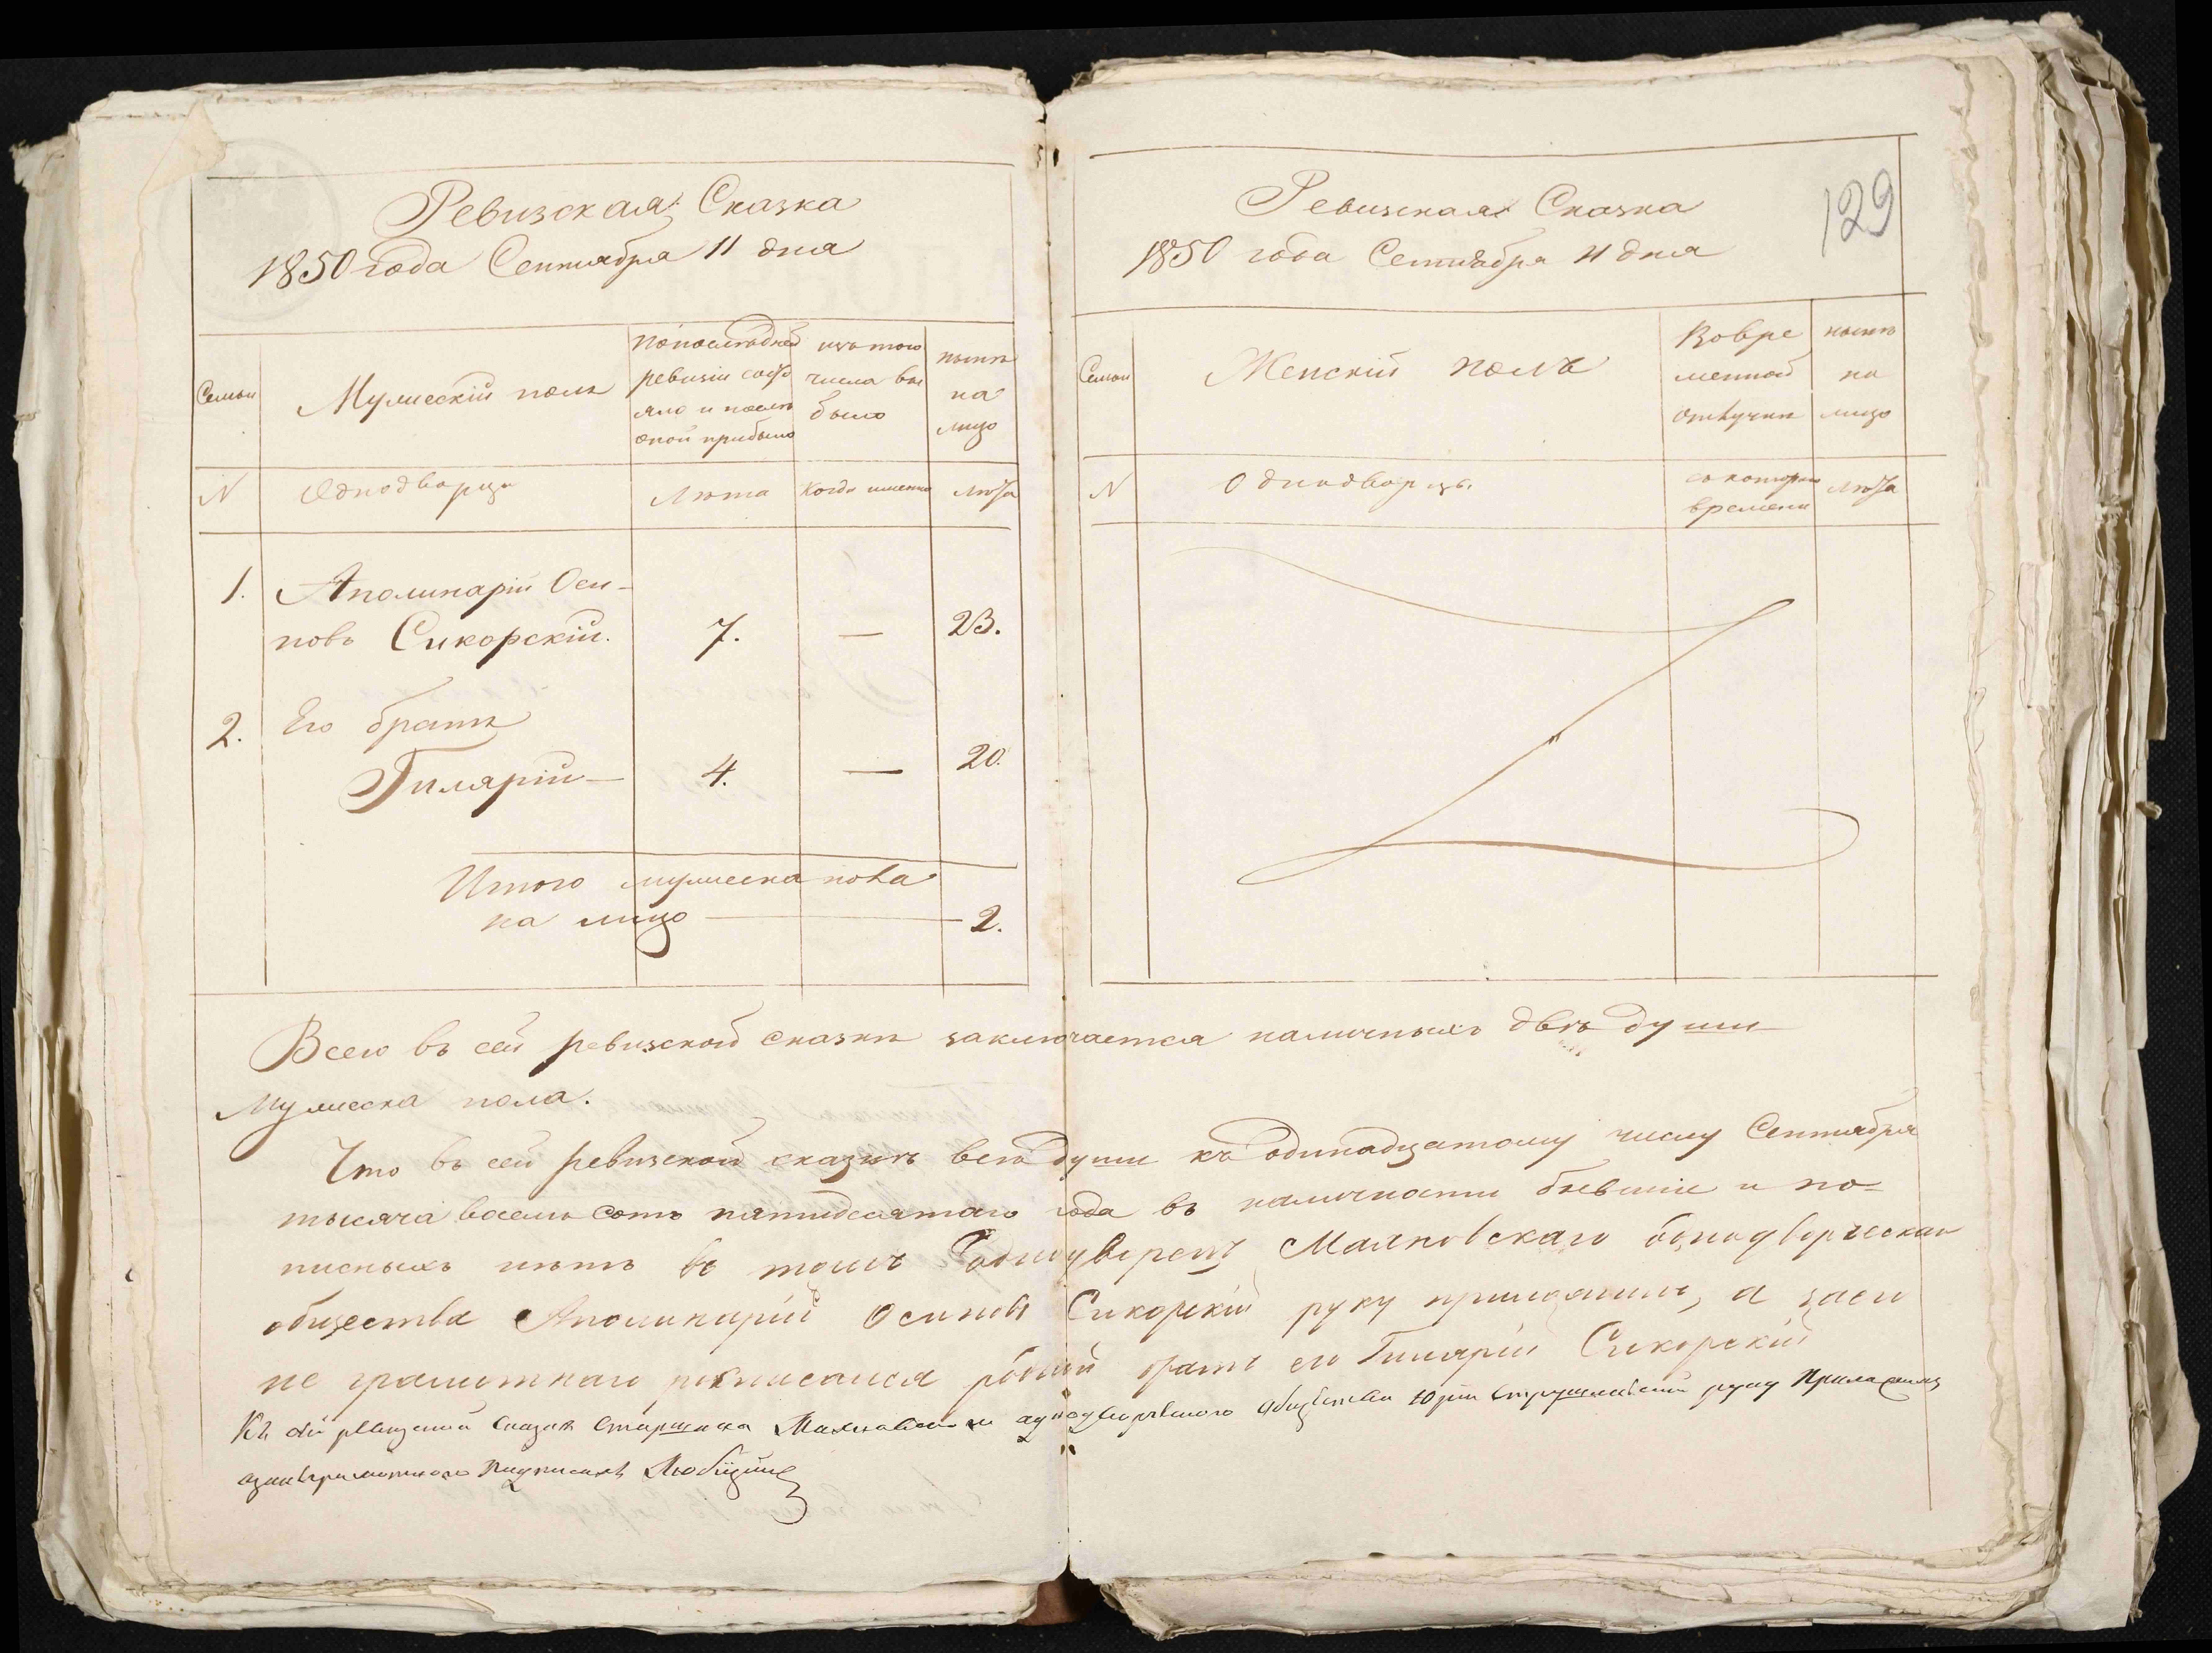 Ревизская Сказка
1850 года Сентября 11 дня
Семьи
Мужескій полъ
по последней
ревизіи состо
яло и после
оной прибыло
изъ того
числа вы
было
ныне
на
лицо
N
Однодворцы
Лета
Когда именно
лета
1.
Аполинарій Оси-
повъ Сикорскій.
7.
—
23.
2.
Его братъ
Гилярій —
4.
—
20.
Итого мужеска пола
на лицо — 2.
Ревизская Сказка
1850 года Сентября 11 дня
129
Семьи
Женскій полъ
Во вре
менной
отлучке
ныне
на
лицо
N
Однодворцы
съ котораго
времени
лета
Всего въ сей ревизской сказке заключается наличныхъ две души
Мужеска пола.
Что въ сей ревизской сказке все души къ одинадцатому числу Сентября
тысяча восемь сотъ пятидесятаго года въ наличности бывшіе и
писныхъ нетъ въ томъ однодворецъ Махновскаго однодворческаго
общества Аполинарій Осиповъ Сикорскій руку приложилъ, а
не грамотнаго росписался родной братъ его Гилярій Сикорскій
Къ сей ревизской сказке Старшина Махновскаго однодворческого общества Юрій руку приложилъ